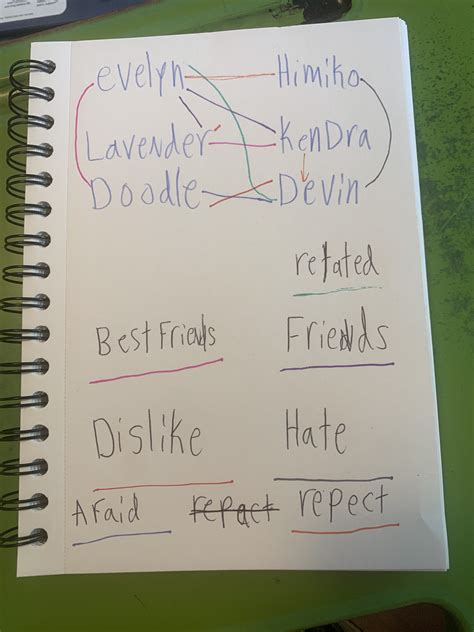 evelyn Himiko
Lavender KenDra
Doodle Devin
retated
Best Friends Friends
Dislike Hate
Afaid repact repect